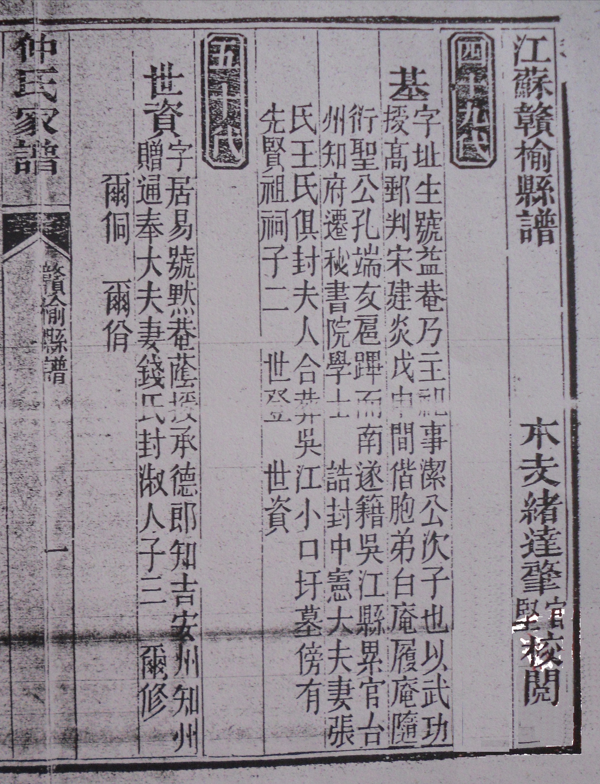 江蘇贛榆縣譜 本支緒達肇堅官校閱
四十九代
基 字址生號益菴乃主祀事潔公次子也以武功
授高郵判宋建炎戊申間偕胞弟白庵履庵隨
衍聖公孔端友扈蹕而南遂籍吳江縣累官台
州知府遷秘書院學士 誥封中憲大夫妻張
氏王氏俱封夫人合葬吳江小口圩墓傍有
先賢祖祠子二 世登 世資
五十代
世資 字居易號默菴蔭授承德郎知吉安州知州
贈通奉大夫妻錢氏封淑人子三 爾修
爾侗 爾佾
仲氏家譜 贛榆縣譜 一